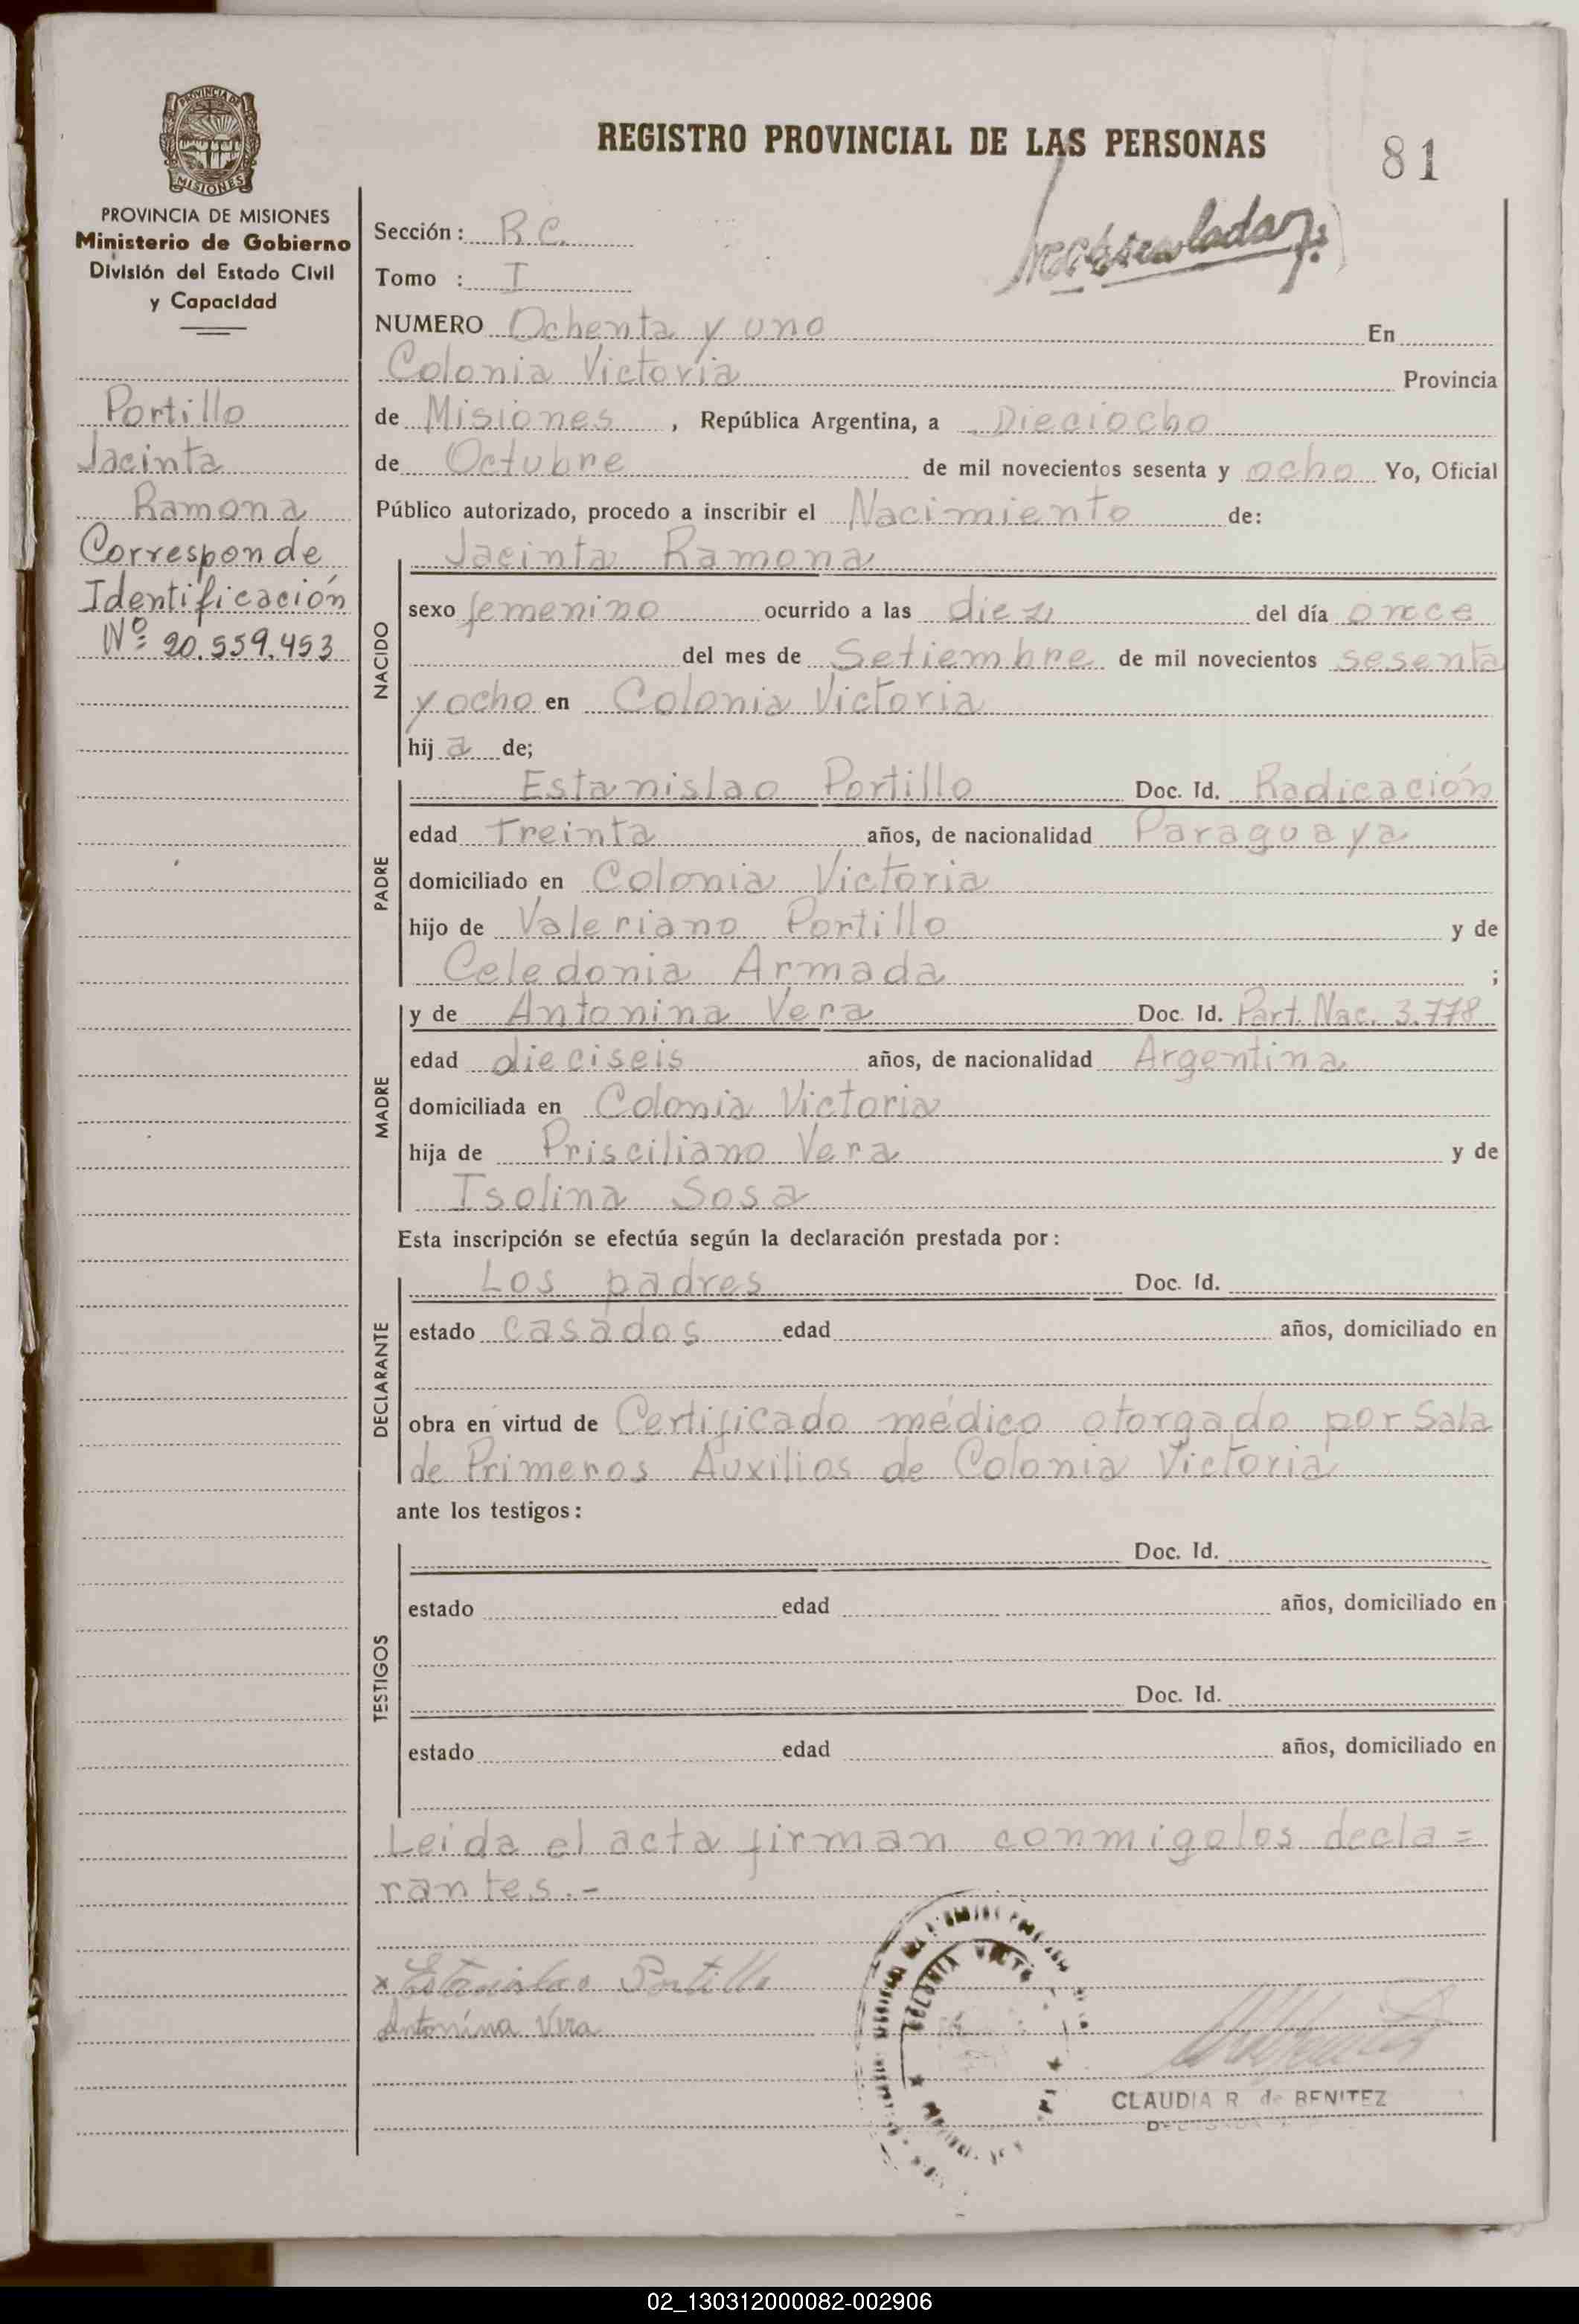 REGISTRO PROVINCIAL DE LAS PERSONAS
81
PROVINCIA DE
MISIONES
PROVINCIA DE MISIONES
Ministerio de Gobierno
División del Estado Civil
y Capacidad
Portillo
Jacinta
Ramona
Corresponde
Identificación
Nº 20.559.453
Sección: R.C.
Tomo : I
NUMERO Ochenta y uno En
Colonia Victoria Provincia
de Misiones, República Argentina, a Dieciocho
de Octubre de mil novecientos sesenta y ocho Yo, Oficial
Público autorizado, procedo a inscribir el Nacimiento de:
NACIDO
Jacinta Ramona
sexo femenino ocurrido a las diez del día once
del mes de Setiembre de mil novecientos sesenta
y ocho en Colonia Victoria
hija de;
PADRE
Estanislao Portillo Doc. Id. Radicación
edad treinta años, de nacionalidad Paraguaya
domiciliado en Colonia Victoria
hijo de Valeriano Portillo y de
Celedonia Armada ;
MADRE
y de Antonina Vera Doc. Id. Part. Nac. 3.778
edad dieciseis años, de nacionalidad Argentina
domiciliada en Colonia Victoria
hija de Prisciliano Vera y de
Isolina Sosa
Esta inscripción se efectúa según la declaración prestada por:
DECLARANTE
Los padres Doc. Id.
estado casados edad años, domiciliado en
obra en virtud de Certificado médico otorgado por Sala
de Primeros Auxilios de Colonia Victoria
ante los testigos:
TESTIGOS
Doc. Id.
estado edad años, domiciliado en
Doc. Id.
estado edad años, domiciliado en
Leida el acta firman conmigo los decla=
rantes.-
x Estanislao Portillo
Antonina Vera
COLONIA VICTO
CLAUDIA R. de BENITEZ
02_130312000082-002906